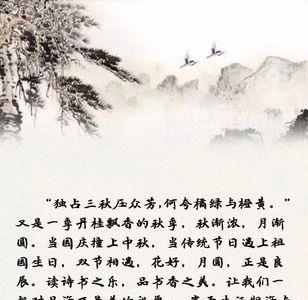 “独占三秋压众芳,何夸橘绿与橙黄。”
又是一季丹桂飘香的秋季，秋渐浓，月渐
圆。当国庆撞上中秋，当传统节日遇上祖
国生日，双节相遇，花好，月圆，正是良
辰。读诗书之乐，品书香之美。让我们一